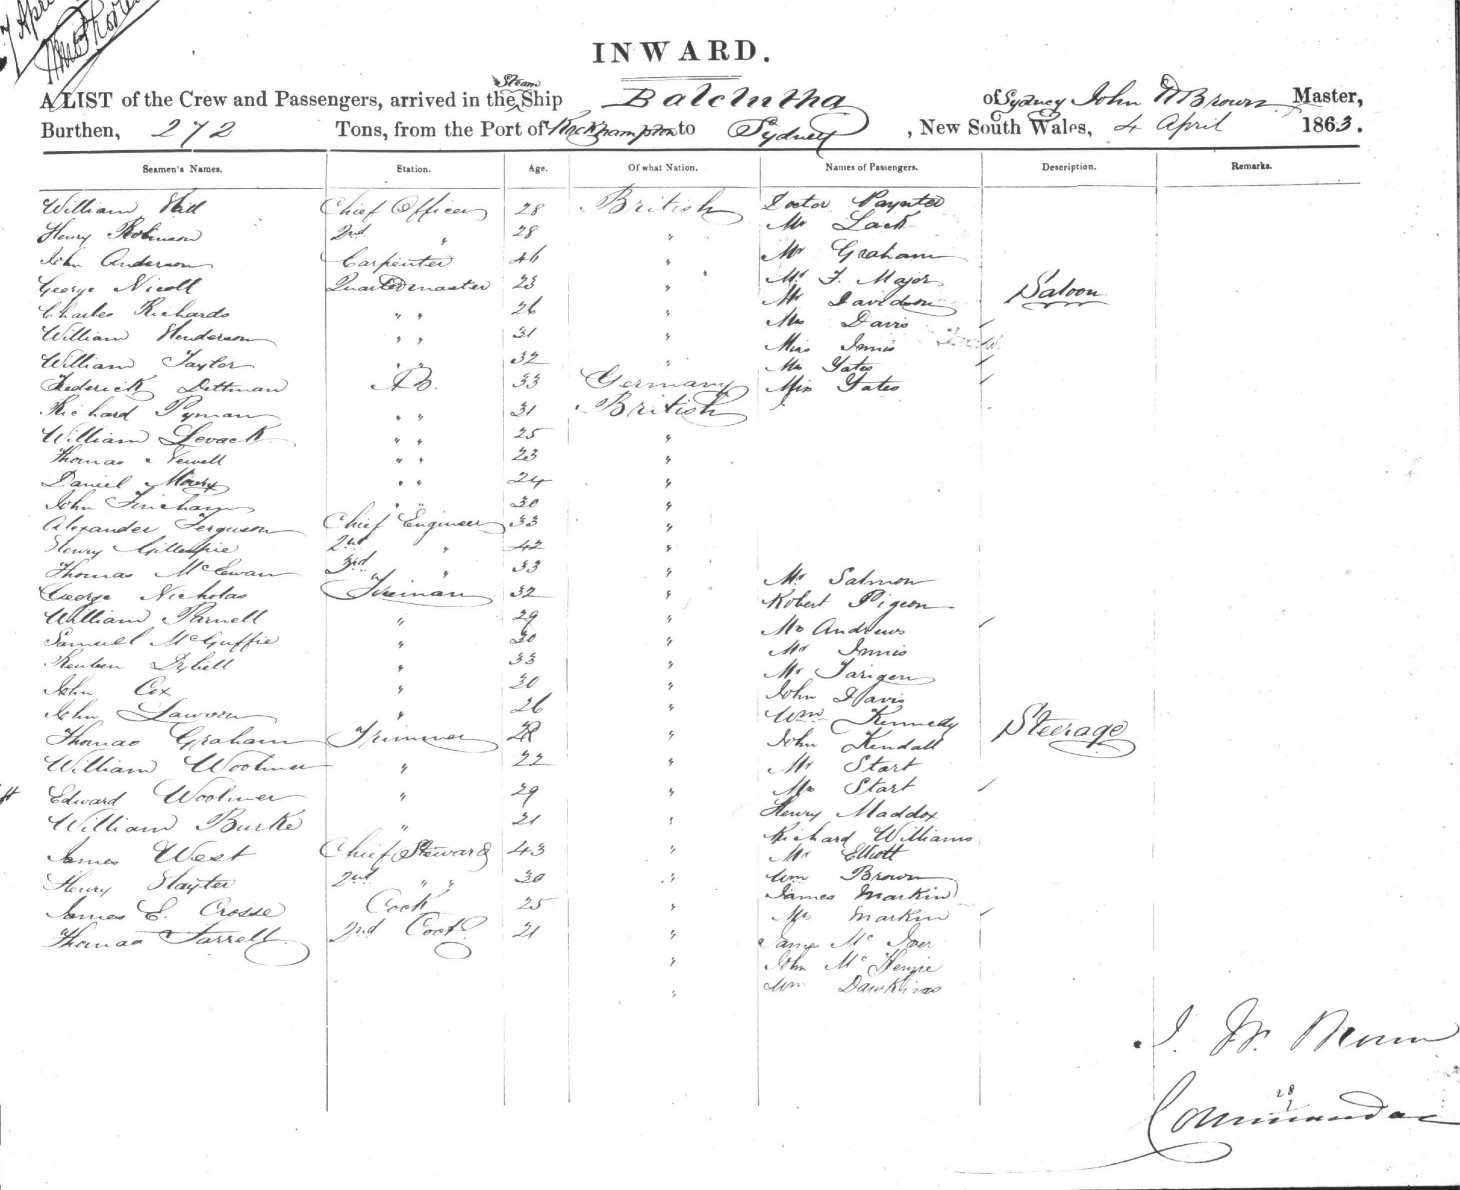 7 April
INWARD.
Steam
A LIST of the Crew and Passengers, arrived in the Ship Balclutha of Sydney John W Brown Master,
Burthen, 272 Tons, from the Port of Rockhampton to Sydney, New South Wales, 4 April 1863.
Seamen's Names. Station. Age. Of what Nation. Names of Passengers. Description. Remarks.
William Chief Officer 28 British Doctor Paynter
Henry Robinson 2nd " 28 " Mr Lack
John Anderson Carpenter 46 " Mr Graham
George Nicoll Quartermaster 23 " Mr F. Major Saloon
Charles Richards " " 26 " Mr Davidson
William Henderson " " 31 " Mrs Davis
William Taylor " " 32 " Miss Innis
Frederick Dittman AB. 33 Germany Mrs Yates
Richard Pyman " " 31 British Miss Yates
William Levack " " 25 "
Thomas Newell " " 23 "
Daniel " " 24 "
John Fincham " " 30 "
Alexander Ferguson Chief Engineer 33 "
Henry Gillespie 2nd " 42 "
Thomas McEwan 3rd " 33 " Mr Salmon
George Nicholas Fireman 32 " Robert Pigeon
William Parnell " 29 " Mrs Andrews
Samuel McGuffie " 30 " Mr Innis
Reuben Dybell " 33 " Mr Tarigen
John Cox " 30 " John Davis
John Lawson " 26 " Wm Kennedy Steerage
Thomas Graham Trimmer 28 " John Kendall
William Woolmer " 22 " Mr Start
Edward Woolmer " 29 " Mrs Start
William Burke " 21 " Henry Maddox
Richard Williams
James West Chief Steward 43 " Mr Elliott
Henry Slayter 2nd " " 30 " Wm Brown
James E. Crosse Cook 25 " James Markin
Thomas Farrell 2nd Cook 21 " Mrs Markin
James Mc Iver
" John McKenzie
" Wm Dawkins
J. W. Brown
28
7
Commander